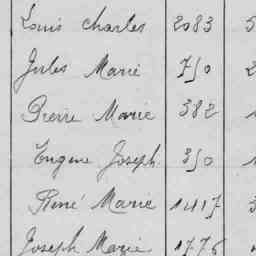 Louis Charles 2083 5
Jules Marie 750 2
Pierre Marie 382
Eugene Joseph 350
René Marie 1417 3
Joseph Marie 1776